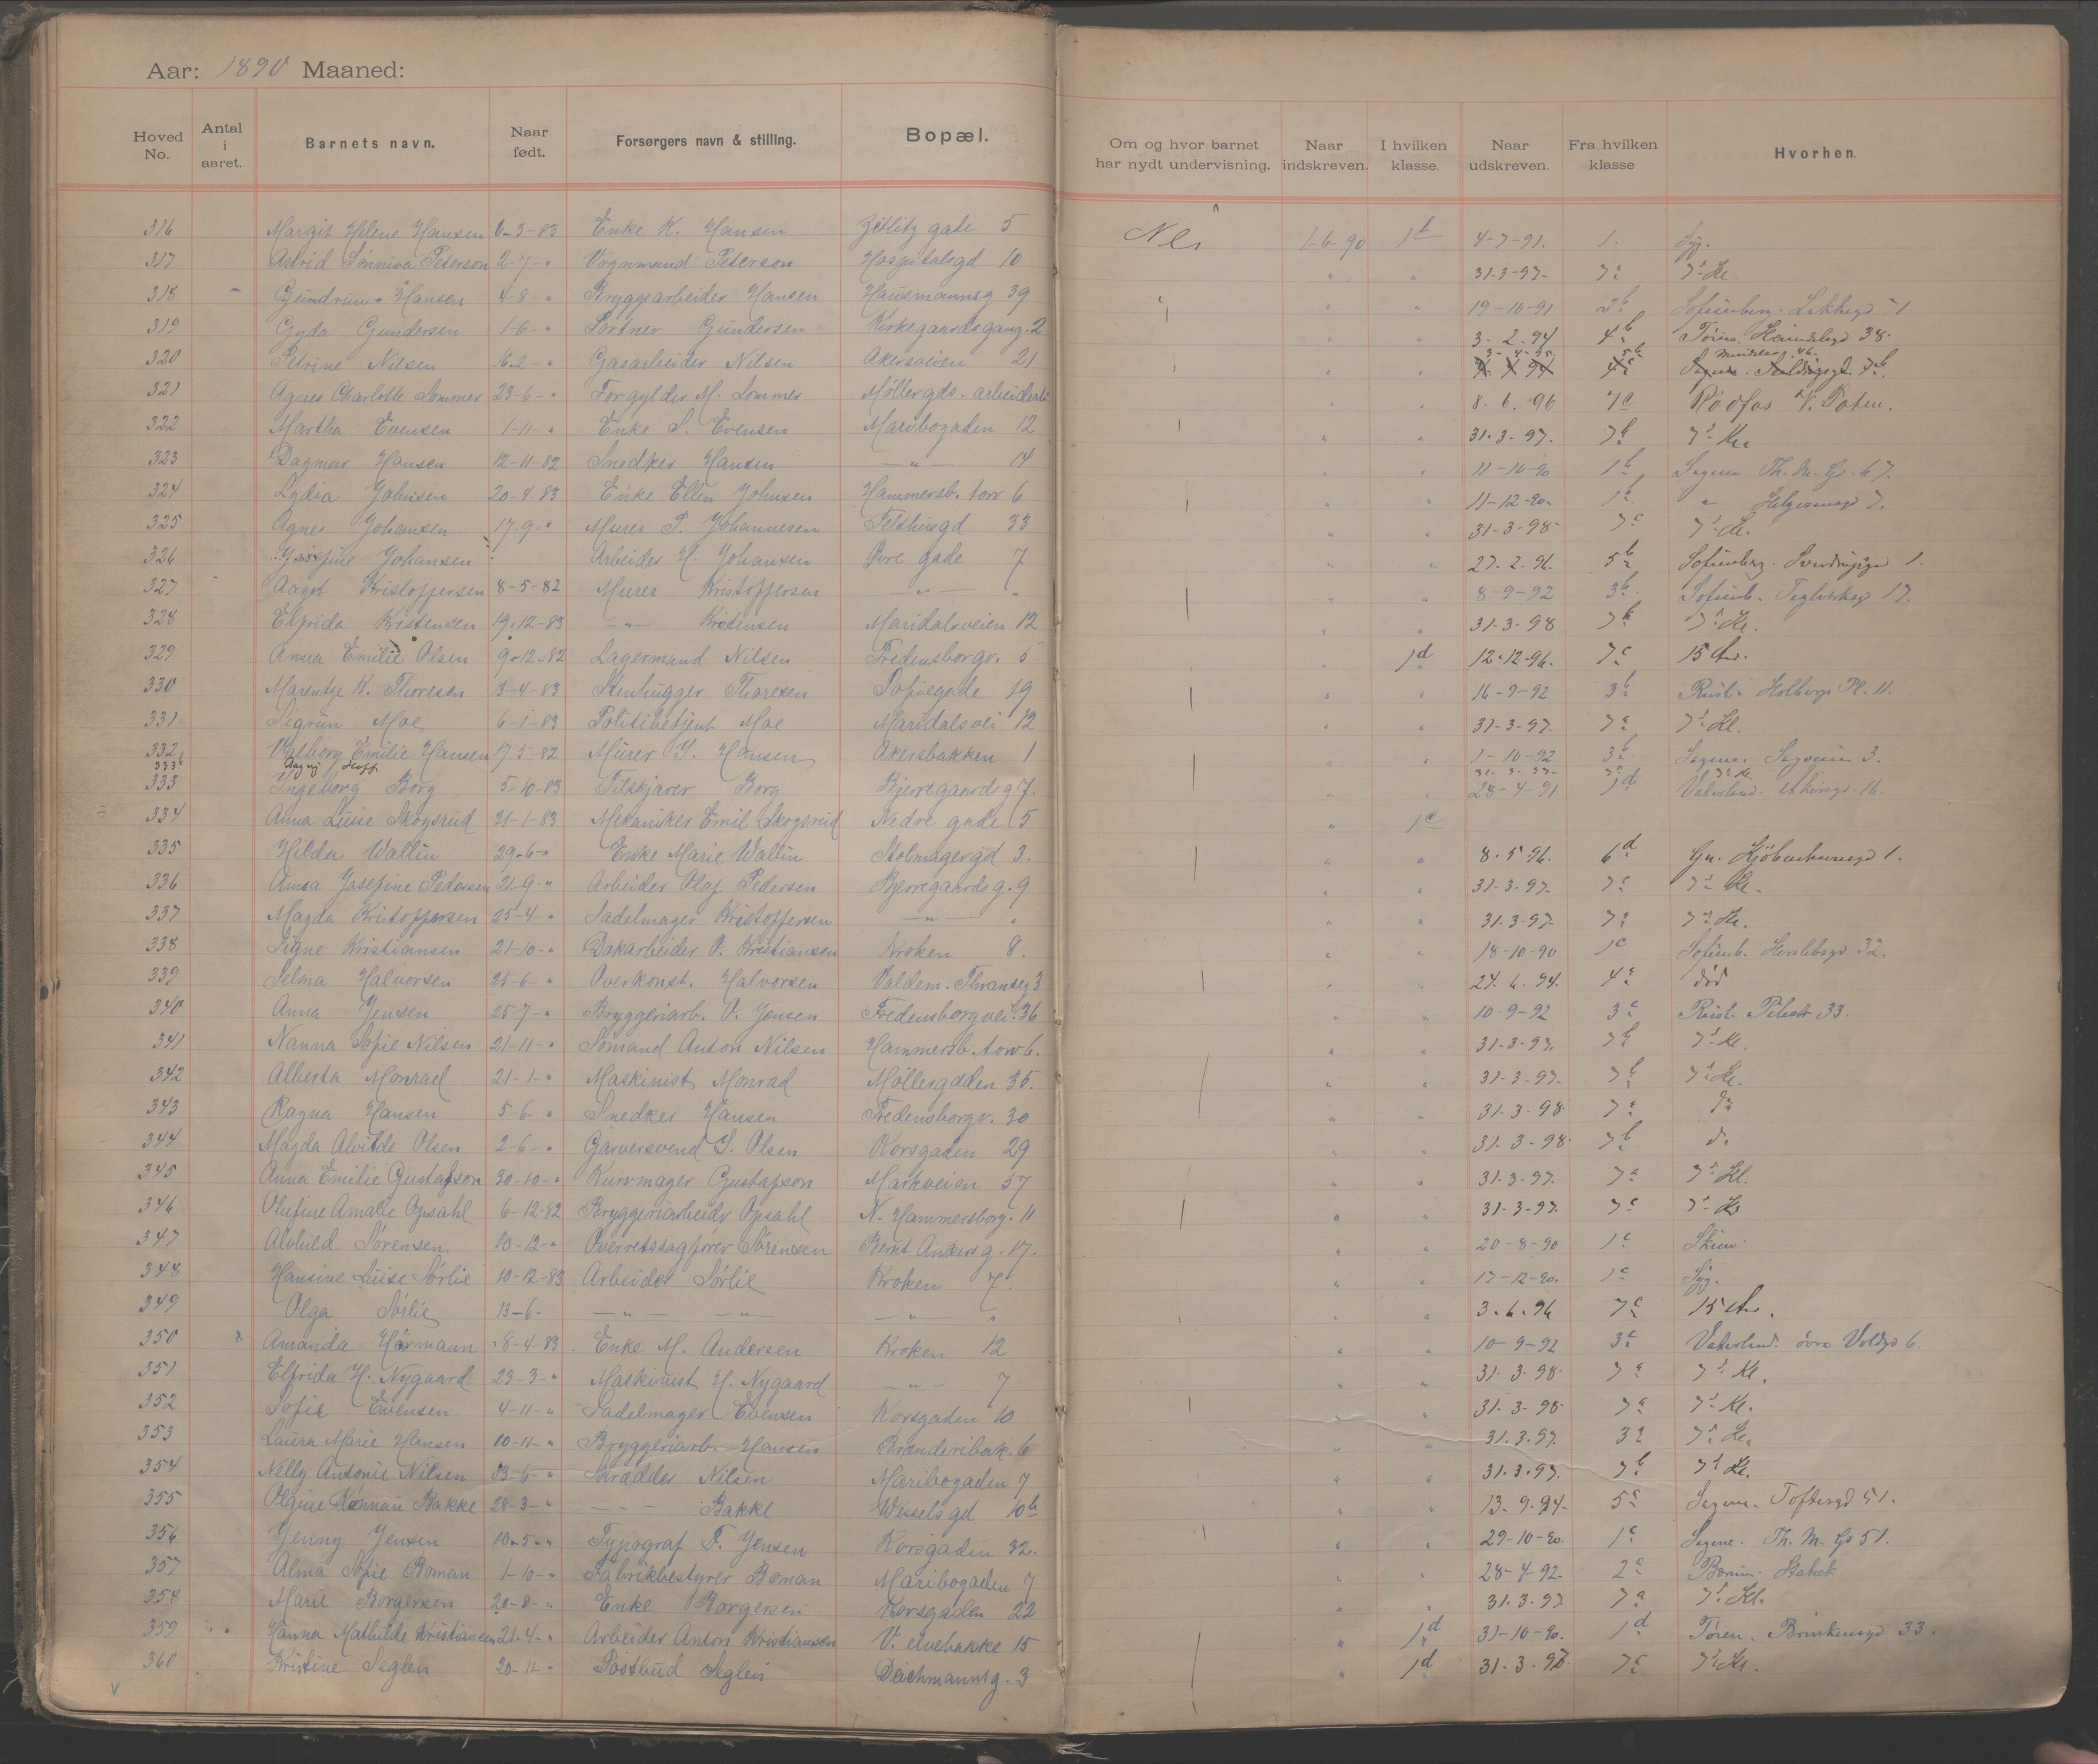 Aar: 1890 Maaned:
Hoved No. Antal i aaret. Barnets navn. Naar født. Forsørgers navn & stilling. Bopæl. Om og hvor barnet har nydt undervisning. Naar indskreven. I hvilken klasse. Naar udskreven. Fra hvilken klasse Hvorhen.
316 Margit Helene Hansen 6-3-83 Enke K. Hansen Zetlitz gade 5 Nei 1-6-90 1b 4-7-91. 1. Syg.
317 Astrid Sönniva Peterson 2-7-" Vognmand Peterson Hospitalsgd 10 " " 31-3-97. 7a 7de Kl.
318 Gundrun Hansen 4-8-" Bryggearbeider Hansen Hausmannsg 39 " " 19-10-91 2b Sofienberg.
319 Gyda Gundersen 1-6-" Portner Gundersen Kirkegaardsgang. 2 " " 3-2-94 4b Töien. 38.
320 Petrine Nilsen 6-2-" Gasarbeider Nilsen Akersveien 21 " "
321 Agnes Charlotte Sommer 23-6-" Forgylder M. Sommer Möllergds. " " 8.6.96 7c
322 Martha Evensen 1-11-" Enke S. Evensen Maribogaden 12 " " 31.3-97. 7b 7de Kl.
323 Dagmar Hansen 12-11-82 Snedker Hansen — " — 14 " " 11-10-90 1b Sagene. Th. M. Gd. 67.
324 Lydia Johnsen 20-4-83 Enke Ellen Johnsen Hammersb. torv 6 " " 11-12-90. "
325 Agnes Johansen 17-9-" Murer P. Johannesen Telthusgd 33 " " 31-3-98- 7c 7de Kl.
326 Josefine Johansen Arbeider H. Johansen 7 " " 27-2-96. 5b Sofienberg. 1.
327 Aagot Kristoffersen 8-5-82 Murer Kristoffersen — " — " " " 8-9-92 3b Sofienb. Teglverksgd 17.
328 Elfrida Kristensen 19-12-83 — " — Kristensen Maridalsveien 12 " " 31-3-98 7b 7de Kl.
329 Anna Emilie Olsen 9-12-82 Lagermand Nilsen Fredensborgv. 5 " 1d 12-12-96. 7c 15 Aar.
330 Marentze K. Thoresen 3-4-83 Stenhugger Thoresen Sofiegade 19 " " 16-9-92 3b Rusel. Holbergs Pl. 11.
331 Sigrun Moe 6-1-83 Politibetjent Moe Maridalsvei 12 " " 31-3-97. 7a 7de Kl.
332 Valborg Emilie Hansen 17-5-82 Murer J. Hansen Akersbakken 1 " " 1-10-92 3b Sagene. 3.
333b Dagny Hoff 31-3-97-
333 Ingeborg Borg 5-10-83 Filskjærer Borg Bjerregaardsg 7. " " 28-4-91 1d Vaterland. Akersgd. 16.
334 Anna Luise Skogsrud 31-1-83 Mekaniker Emil Skogsrud Nedre gade 5 " 1c
335 Hilda Wallin 29-6-" Enke Marie Wallin Stolmagergd 3. " " 8.5 96. 6d Gr. Kjöbenhavnsgd 1.
336 Anna Josefine Pedersen 21-9-" Arbeider Olaf Pedersen Bjerregaardsg. 9 " " 31-3-97. 7c 7de Kl.
337 Magda Kristoffersen 25-4-" Sadelmager Kristoffersen — " — " " " 31-3-97. 7a 7de Kl.
338 Signe Kristiansen 21-10-" Dakarbeider O. Kristiansen Kroken 8. " " 18-10-90 1c Sofienb. Herslebsgd 32.
339 Selma Halvorsen 25-6-" Overkonst. Halvorsen Valdem. Thranesg 3 " " 27.6.94. 4a död
340 Anna Jensen 25-7-" Bryggeriarb. O. Jensen Fredensborgvei. 36 " " 10-9-92 3c Rusel. Pilestr 33.
341 Nanna Sofie Nilsen 21-11-" Sömand Anton Nilsen Hammersb. torv 6. " " 31-3-97. 7b 7de Kl.
342 Alberta Monrad 21-1-" Maskinist Monrad Möllergaden 35. " " 31-3-97. 7b 7de Kl.
343 Ragna Hansen 5-6-" Snedker Hansen Fredensborgv. 30 " " 31-3-98 7a do
344 Magda Alvilde Olsen 2-6-" Garversvend J. Olsen Korsgaden 29 " " 31-3-98 7b do
345 Anna Emilie Gustafson 30-10-" Kurvmager Gustafson Markveien 57 " " 31-3-97. 7a 7de Kl.
346 Olufine Amalie Opsahl 6-12-82 Bryggeriarbeider Opsahl N. Hammersborg. 11 " " 31-3-97. 7c 7de Kl
347 Alvhild Sörensen 13-12-" Overretssagförer Sörensen Bernt Ankersg. 17. " " 20-8-90 1c Skien
348 Hansine Luise Sörlie 10-12-83 Arbeider Sörlie Kroken 7. " " 17-12-90. 1c Syg.
349 Olga Sörlie 13-6- — " — " — " — " " " 3.6.96 7c 15 Aar.
350 Amanda Hörmann 8-4-83 Enke M. Andersen Kroken 12 " " 10-9-92 3c Vaterland. övre Voldgd 6.
351 Elfrida H. Nygaard 23-3-" Maskinist H. Nygaard — " — 7 " " 31-3-98- 7a 7de Kl.
352 Sofie Evensen 4-11-" Sadelmager Evensen Korsgaden 10 " " 31-3-98- 7a 7de Kl.
353 Laura Marie Hansen 10-11-" Bryggeriarb. Hansen Brænderibak. 6 " " 31.3.97. 7de Kl.
354 Nelly Antonie Nilsen 13-6-" Skrædder Nilsen Maribogaden 7 " " 31.3.97. 7b 7de Kl.
355 Olgine Rönnau Bakke 28-3-" — " — Bakke Wesselsgd 10b " " 13-9-94- 5c Sagene. Toftesgd 51.
356 Jenny Jensen 10-5-" Typograf F. Jensen Korsgaden 32. " " 29-10-90. 1c Sagene. Th. M. Gd 51.
357 Alma Sofie Boman 1-10-" Fabrikbestyrer Boman Maribogaden 7 " " 28-4-92- 2c Bærum. Stabæk
358 Marie Borgersen 20-8-" Enke Borgersen Korsgaden 22 " " 31.3.97 7a 7de Kl.
359 Hanna Mathilde Kristiansen 21-4-" Arbeider Anton Kristiansen V. elvebakke 15 " 1d 31-10-90. 1d Töien. Brinkensgd 33.
360 Kristine Seglen 20-11-" Postbud Seglen Deichmannsg. 3 " 1d 31.3.98. 7c 7de Kl.